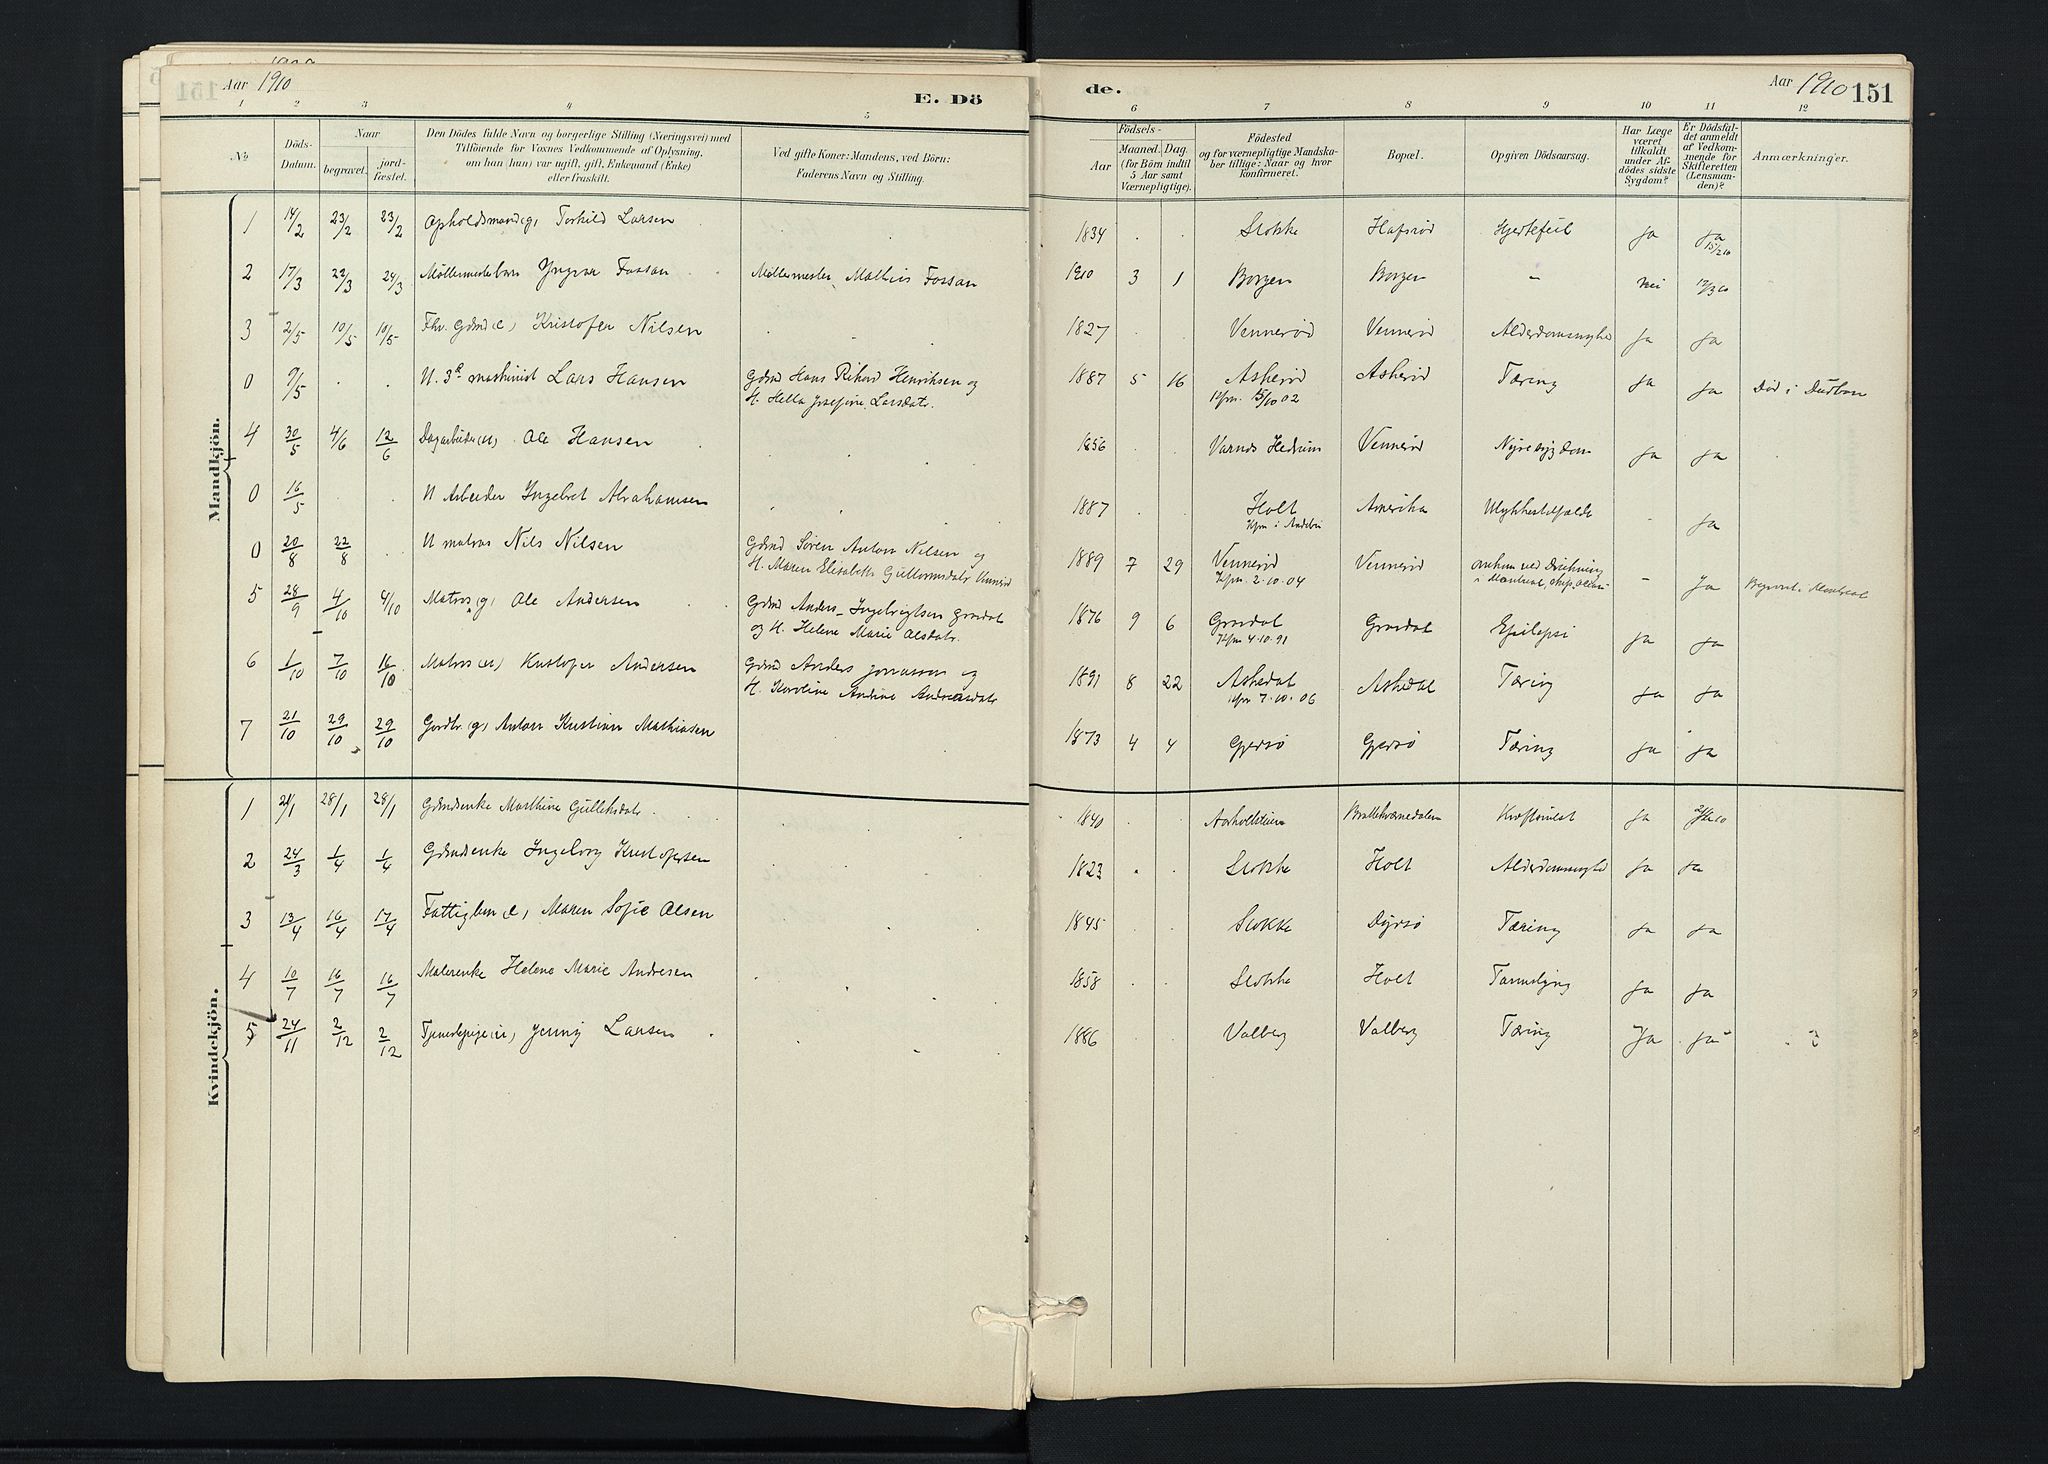 Aar 1910
E. Dö
1 2 3 4 5
No
Döds-
Datum.
Naar
begravet.
jord-
fæstet.
Den Dödes fulde Navn og borgerlige Stilling (Næringsvei) med
Tilföiende for Voxnes Vedkommende af Oplysning,
om han (hun) var ugift, gift, Enkemand (Enke)
eller fraskilt.
Ved gifte Koner: Mandens, ved Börn:
Faderens Navn og Stilling.
Mandkjön.
1 14/2 23/2 23/2 Opholdsmand (g) Torkild Larsen
2 17/3 22/3 24/3 Møllermesterbarn Yngvar Fossan Møllermester Mathis Fossan
3 2/5 10/5 10/5 Fhv. Gdmd (e) Kristofer Nilsen
0 9/5 U. 3die maskinist Lars Hansen Gdmd Hans Rikard Henriksen og
H. Hella Josefine Larsdatr.
4 30/5 4/6 12/6 Dagarbeider (u) Ole Hansen
0 16/5 U Arbeider Ingebret Abrahamsen
0 20/8 22/8 U matros Nils Nilsen Gdmd Søren Anton Nilsen og
H. Maren Elisabeth Gullormsdatr Vennerød
5 28/9 4/10 4/10 Matros (g) Ole Andersen Gdmd Anders Ingebrigtsen Grøndal
og H. Helene Marie Olsdatr.
6 1/10 7/10 16/10 Matros (u) Kristofer Andersen Gdmd Anders Jonasson og
H. Karoline Andrine Andreasdatr
7 21/10 29/10 29/10 Gordbr (g) Anton Kristian Mathiasen
Kvindekjön.
1 21/1 28/1 28/1 Gdmdsenke Marthine Gulleksdatr.
2 24/3 1/4 1/4 Gdmdsenke Ingeborg Kristofersen
3 13/4 16/4 17/4 Fattiglem (e) Maren Sofie Olsen
4 10/7 16/7 16/7 Malerenke Helene Marie Andresen
5 24/11 2/12 2/12 Tjenestepige (u) Jenny Larsen
de.
Aar 1910 151
6 7 8 9 10 11 12
Födsels-
Aar
Maaned. Dag.
(for Börn indtil
5 Aar samt
Værnepligtige).
Födested
og for værnepligtige Mandska-
ber tillige: Naar og hvor
konfirmeret.
Bopæl.
Opgiven Dödsaarsag.
Har Læge
været
tilkaldt
under Af-
dödes sidste
Sygdom?
Er Dödsfal-
det anmeldt
af Vedkom-
mende for
Skifteretten
(Lensman-
den)?
Anmærkninger.
1834 Stokke Hafsrød Hjertefeil Ja Ja
15/2 10
1910 3 1 Borgen Borgen - Nei 17/3 10
1827 Vennerød Vennerød Alderdomssvaghed Ja Ja
1887 5 16 Askerød Askerød Tæring Ja Ja Død i Durban
Kfm. 5/10 02
1856 Varnæs Hedrum Vennerød Nyresygdom Ja Ja
1887 Holt Amerika Ulykkestilfælde - Ja
Kfm i Andebu
1889 7 29 Vennerød Vennerød omkom ved Drukning - Ja Begravet i Montreal
Kfm. 2.10.04 i Montreal,
1876 9 6 Grøndal Grøndal Epilepsi Ja Ja
Kfm 4.10.91
1891 8 22 Askedal Askedal Tæring Ja Ja
Kfm 7.10.06
1873 4 4 Gjersø Gjersø Tæring Ja Ja
1840 Kræft Ja
1823 Stokke Holt Alderdomssvaghed Ja Ja
1845 Stokke Dyrsø Tæring Ja Ja
1858 Stokke Holt Tarmslyng Ja Ja
1886 Valberg Valberg Tæring Ja Ja